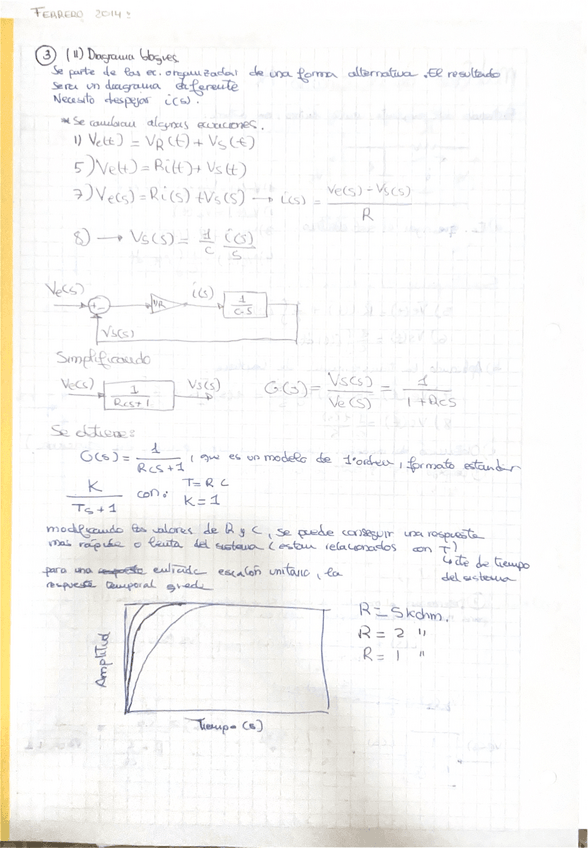 FEBRERO 2014:
③ (II) Diagrama bloques
Se parte de las ec. organizadas de una forma alternativa. El resultado
sera un diagrama diferente
Necesito despejar i(s).
* Se cambian algunas ecuaciones.
1) Ve(t) = VR(t) + Vs(t)
5) Ve(t) = Ri(t) + Vs(t)
7) Ve(s) = Ri(s) + Vs(s) → i(s) = (Ve(s) - Vs(s)) / R
8) → Vs(s) = 1/C i(s)/s
Ve(s) + - 1/R i(s) 1/C·S
Vs(s)
Simplificando
Ve(s) 1/(RCS+1) Vs(s) G(s) = Vs(s)/Ve(s) = 1/(1+RCS)
Se obtiene:
G(s) = 1/(RCS+1), que es un modelo de 1º orden, formato estandar
K/(Ts+1) con: T = RC
K = 1
modificando los valores de R y C, se puede conseguir una respuesta
mas rápida o lenta del sistema (estan relacionados con T)
↳ cte de tiempo
del sistema
para una entrada escalón unitario, la
respuesta temporal
Amplitud
Tiempo (s)
R = 5 kohm.
R = 2 "
R = 1 "